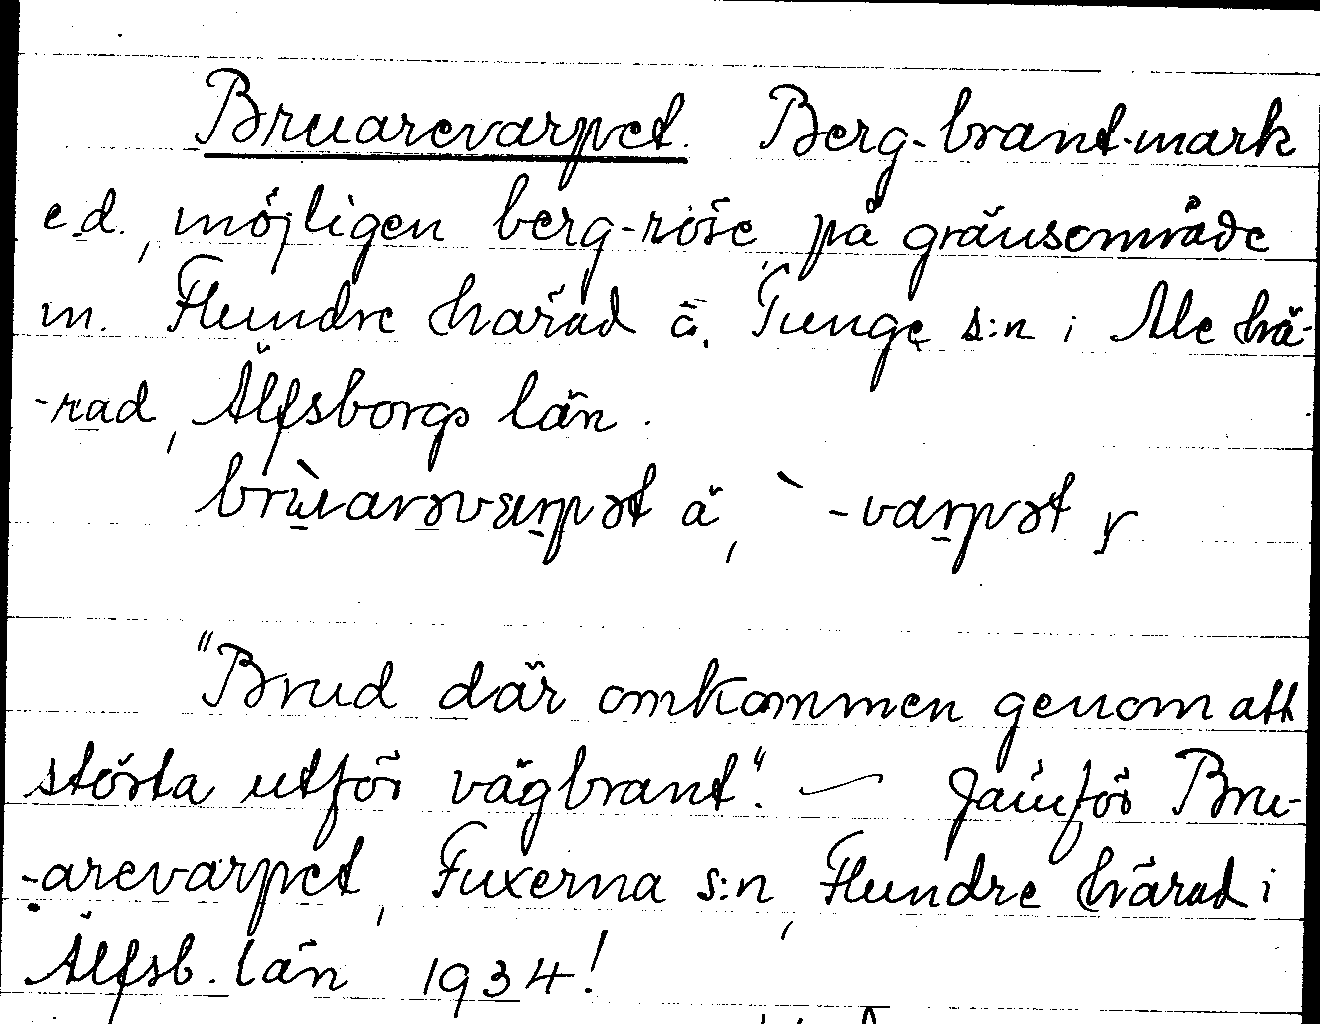 Bruarevarpet. Berg-brant-mark
e.d., möjligen berg-röse, på gränsområde
m. Flundre härad ä. Tunge s:n i Ale hä-
-rad, Älfsborgs län.
brùarəvarpət ä, ` -varpət y
"Brud där omkommen genom att
störta utför vägbrant". — Jämför Bru-
-arevarpet, Fuxerna s:n, Flundre härad i
Älfsb. län 1934!